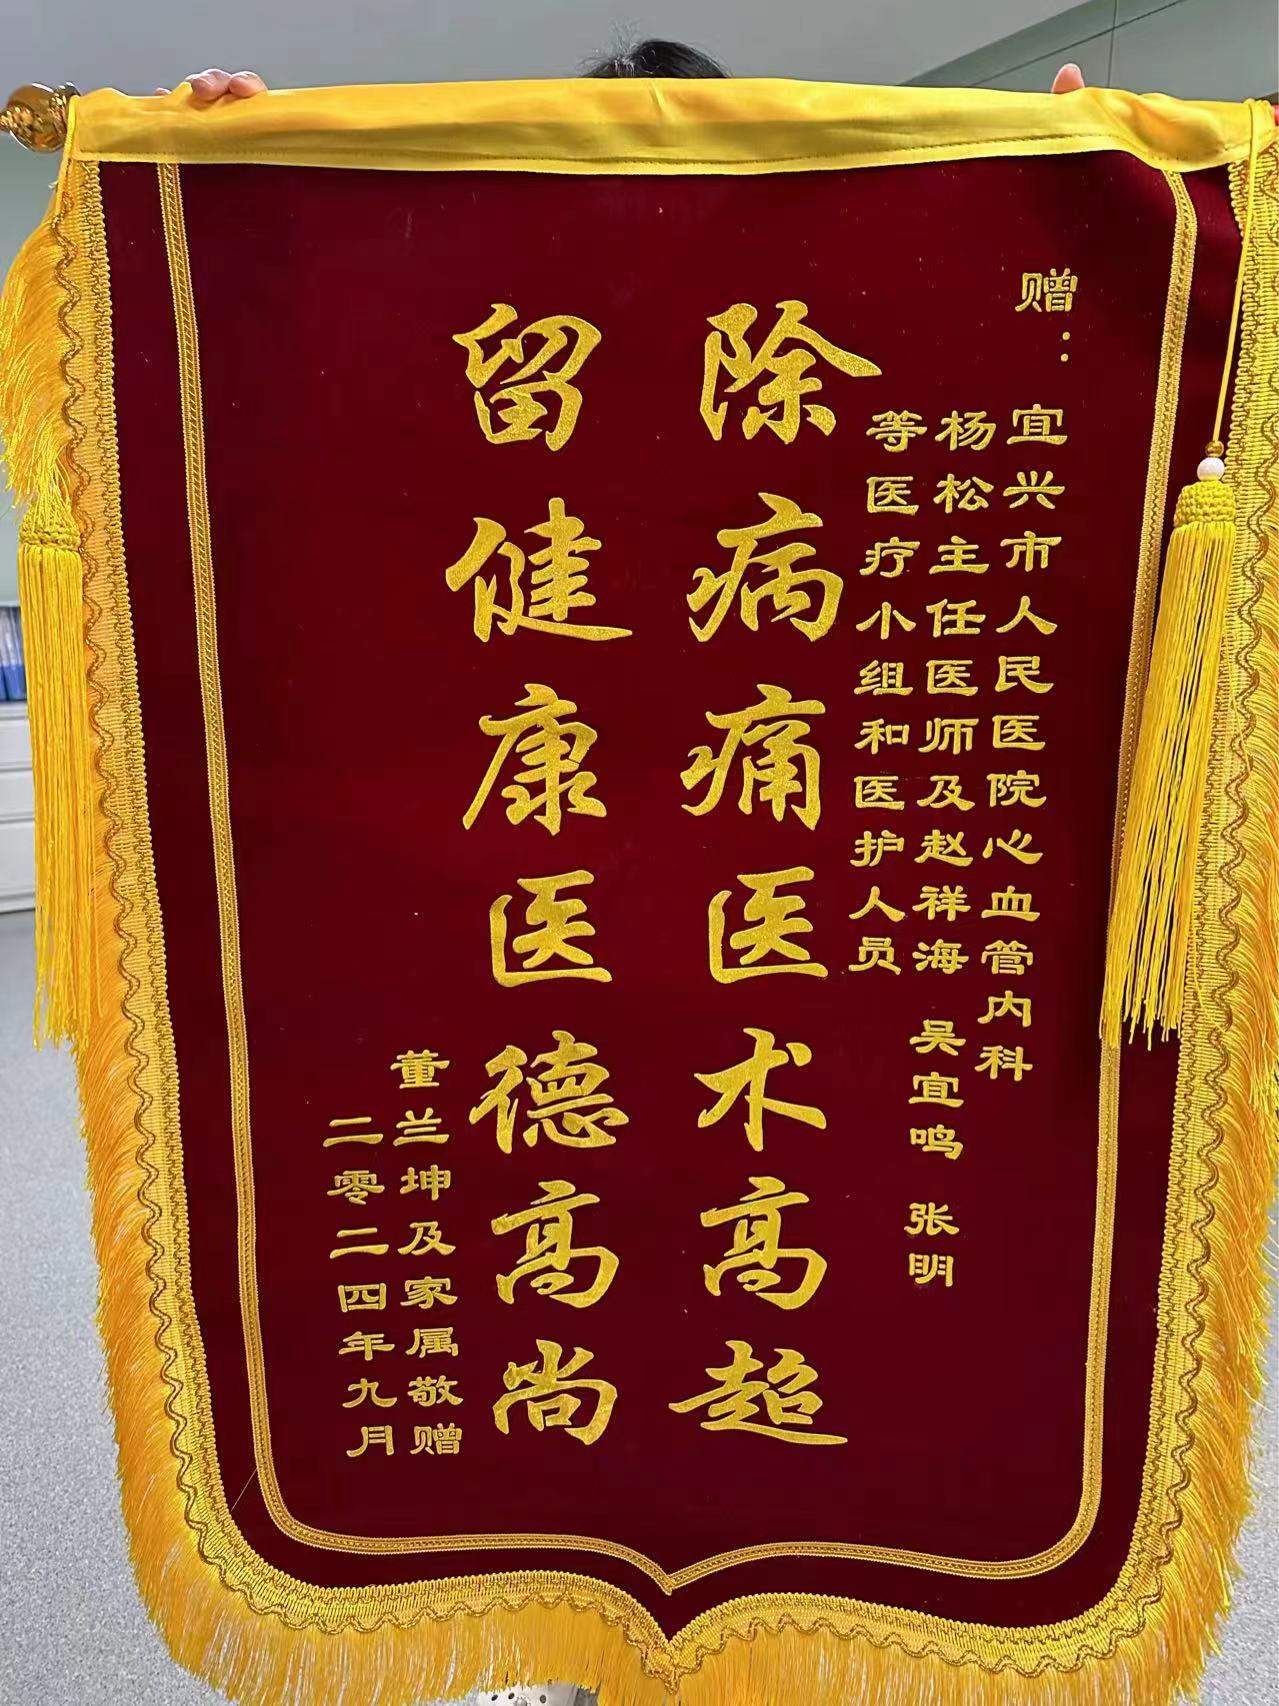 赠：
宜兴市人民医院心血管内科
杨松主任医师及赵祥海 吴宜鸣 张明
等医疗小组和医护人员
除病痛医术高超
留健康医德高尚
董兰坤及家属敬赠
二零二四年九月